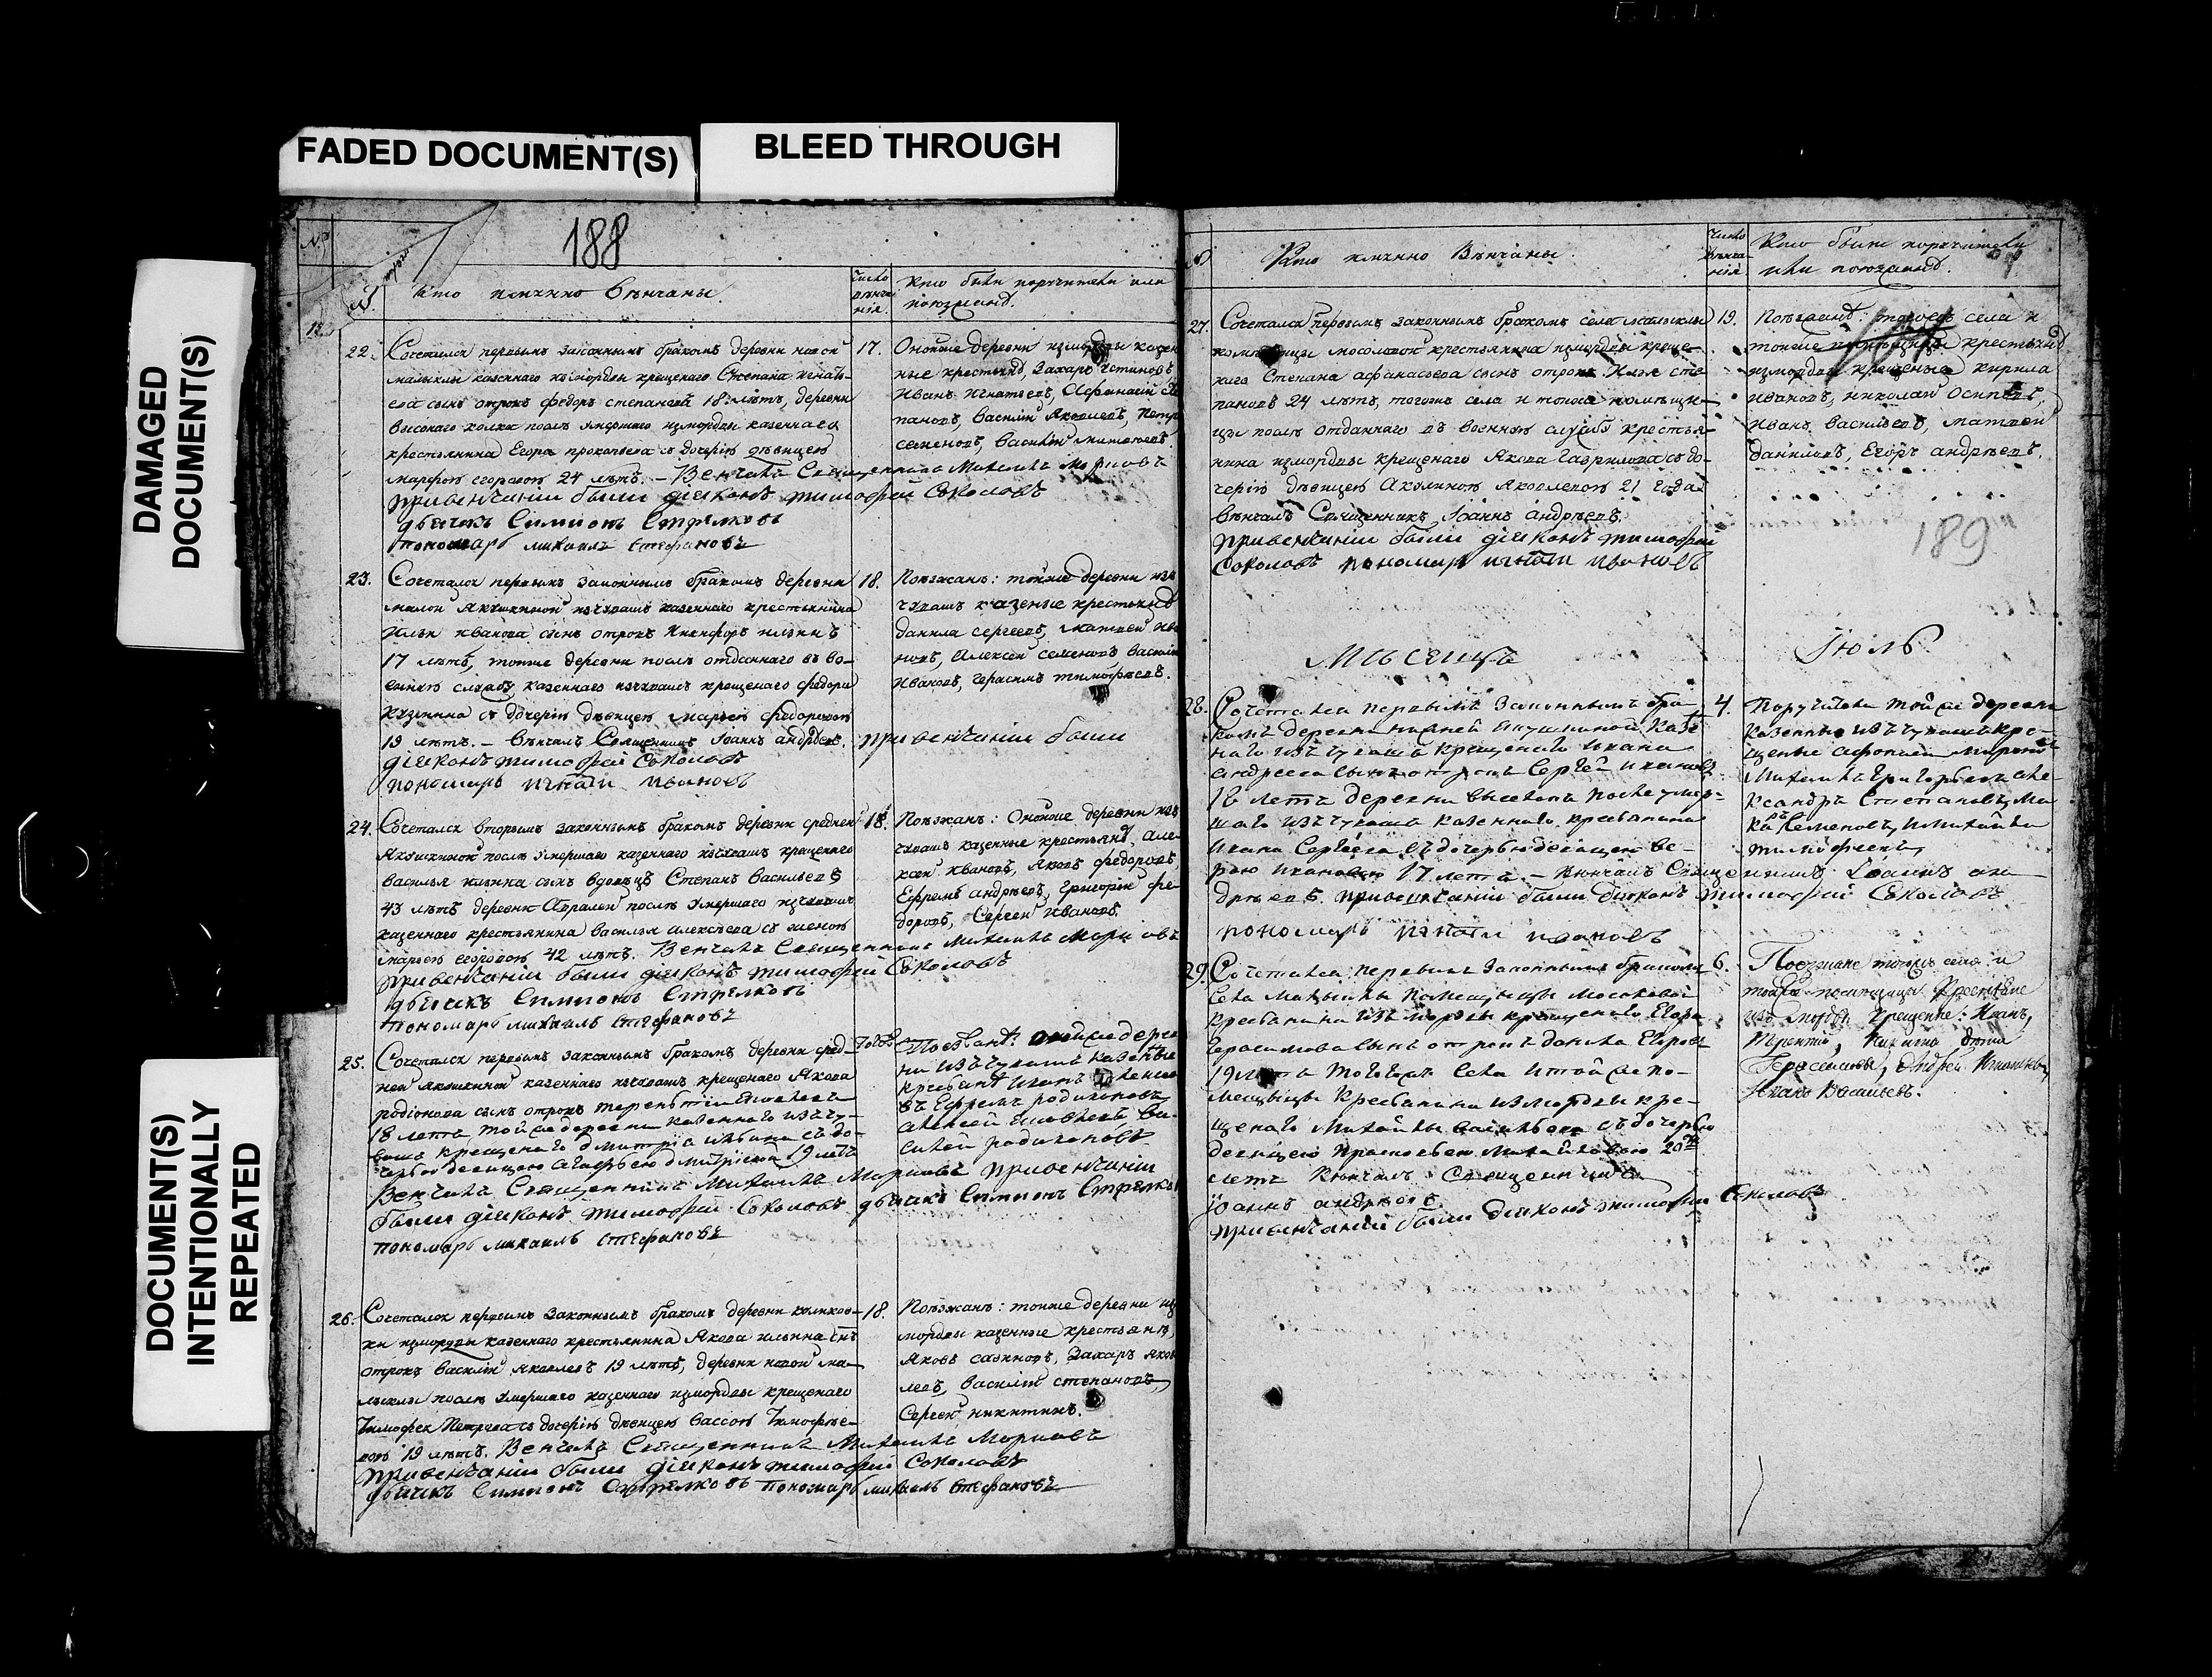 FADED DOCUMENT(S)
BLEED THROUGH
DAMAGED
DOCUMENT(S)
DOCUMENT(S)
INTENTIONALLY
REPEATED
188
№
Кто имянно венчаны.
Число
венча
нія.
Кто были поручители или
поезжанѣ.
22.
Сочетался первымъ законнымъ бракомъ деревни новой
малыклы казеннаго измордвы крещенаго Степана игнать-
ева сынъ отрокъ федоръ степановъ 18 лѣтъ, деревни
высокаго колка послѣ умершаго измордвы казеннаго
крестьянина Егора прокопьева съ дочерію девицею
марфою егоровою 24 лѣтъ. – Венчалъ Священникъ Михаилъ
привенчаніи были діяконъ тимофей Соколовъ
дьячикъ Симионъ Стрелковъ
пономарь михаилъ Стефановъ
17.
Оноиже деревни измордвы казен
ные крестьянѣ, Захаръ устиновъ
Иванъ Игнатьевъ, Афанасій Сте
пановъ, василій Яковлевъ, Петръ
семеновъ, василій
23.
Сочетался первымъ законнымъ бракомъ деревни
малой Якушкиной изчувашъ казеннаго крестьянина
Ильи иванова сынъ отрокъ Никифоръ ильинъ
17 лѣтъ, тоиже деревни послѣ отданнаго въ во-
енную службу казеннаго изчувашъ крещенаго федора
кузмина съ дочерію девицею марьею федоровою
19 лѣтъ. – Венчалъ Священникъ Іоаннъ андреевъ. привенчаніи были
діяконъ тимофей Соколовъ
пономарь игнати ивановъ
18.
Поезжанъ: тоиже деревни изъ
чувашъ казеные крестьянѣ
данила сергеевъ, матвей ива
новъ, Алексей семеновъ василій
Ивановъ, герасимъ тимофеевъ.
24.
Сочетался вторымъ законнымъ бракомъ деревни средней
Якушкиной послѣ умершаго казеннаго изчувашъ крещенаго
василья сынъ вдовецъ Степанъ Васильевъ
43 лѣтъ деревни послѣ умершаго изчувашъ
казеннаго крестьянина василья алексеева съ женою
марьею егоровою 42 лѣтъ. Венчалъ Священникъ Михаилъ
привенчаніи были діяконъ тимофей Соколовъ
дьячикъ Симионъ Стрелковъ
пономарь михаилъ Стефановъ
18.
Поезжанъ: Оноиже деревни изъ
чувашъ казенные крестьянѣ, Але
ксей ивановъ, Яковъ федоровъ,
Ефремъ андреевъ, григорій фе
доровъ, Сергей Ивановъ.
25.
Сочетался первымъ законнымъ бракомъ деревни сред-
ней якушкиной казеннаго изчувашъ крещенаго Якова
родіонова сынъ отрокъ терентій Яковлевъ
18 летъ, той же деревни казеннаго изъ чу-
вашъ крещенаго дмитрія съ до-
черью девицею дмитріевой 19 летъ
Венчалъ Священникъ Михаилъ привенчаніи
были діяконъ тимофей Соколовъ дьячикъ Симионъ Стрелковъ
пономарь михаилъ Стефановъ
Поезжанѣ: онойже дерев
ни изъ чувашъ казенные
въ Ефремъ родионовъ
алексей
родионовъ
26.
Сочетался первымъ законнымъ бракомъ деревни
измордвы казеннаго крестьянина Якова ильина сынъ
отрокъ василій яковлевъ 19 лѣтъ, деревни новой ма-
лыклы послѣ умершаго казеннаго измордвы крещенаго
Тимофея Петрова съ дочерію девицею вассою Тимофее-
вою 19 лѣтъ. Венчалъ Священникъ Михаилъ
привенчаніи были діяконъ тимофей Соколовъ
дьячикъ Симионъ Стрелковъ пономарь михаилъ Стефановъ
18.
Поезжанъ: тоиже деревни из
мордвы казенные крестьянѣ,
Яковъ савиновъ, Захаръ яков
левъ, василій степановъ,
Сергей никитинъ.
Кто имянно Венчаны.
Число
Венча-
нія
Кто были поручители
или поезжанѣ.
27.
Сочетался первымъ законнымъ бракомъ села малыклы
помещицы мосоловой крестьянина измордвы креще-
наго Степана афанасьева сынъ отрокъ Илья сте
пановъ 24 лѣтъ, тогожъ села и тоиже помещи-
цы послѣ отданнаго въ военную службу крестья-
нина измордвы крещенаго Якова Гаврилова съ до-
черію девицею Акулиною Яковлевою 21 года
Венчалъ Священникъ Іоаннъ андреевъ.
привенчаніи были діяконъ тимофей
Соколовъ пономарь игнати ивановъ
19.
Поезжанѣ: тогожъ села и
тоиже помещицы крестьянѣ
измордвы крещеные кирила
ивановъ, николай Осиповъ,
Иванъ васильевъ, матвей
даниловъ, Егоръ андреевъ.
189
Месецъ
Іюль
28.
Сочетался первымъ законнымъ бра-
комъ деревни нижней Якушкиной казе
наго изъ чувашъ крещенаго ивана
андреева сынъ отрокъ Сергей ивановъ
18 летъ деревни послѣ умер-
шаго изъ чувашъ казеннаго крестьянина
ивана Сергеева съ дочерью девицею ве-
рою ивановою 17 летъ. – Венчалъ Священникъ Іоаннъ ан-
дреевъ. привенчаніи были діяконъ тимофей Соколовъ
пономарь игнати ивановъ
4.
Поручители той же деревни
казенные изъ чувашъ кре-
щеные
Михаила Григорьевъ але-
ксандръ Степановъ, Ма
Семеновъ, и Михайла
тимофеевъ,
29.
Сочетался первымъ законнымъ бракомъ
села Малыклы помещицы Мосоловой
крестьянина изъ мордвы крещенаго Егора
Герасимова сынъ отрокъ данила Егоровъ
19 летъ того же села и той же по-
мещицы крестьянина измордвы кре-
щенаго Михайлы васильева съ дочерью
девицею Прасковьею Михайловою 20
летъ Венчалъ Священникъ
Іоаннъ андреевъ
привенчаніи были діяконъ тимофей Соколовъ
6.
Поезжане тогожъ села и
тойже помещицы Крестьяне
изъ мордвы Крещеные: Иванъ,
Терентій, дети
Герасимовы, Андрей
Иванъ Васильевъ.